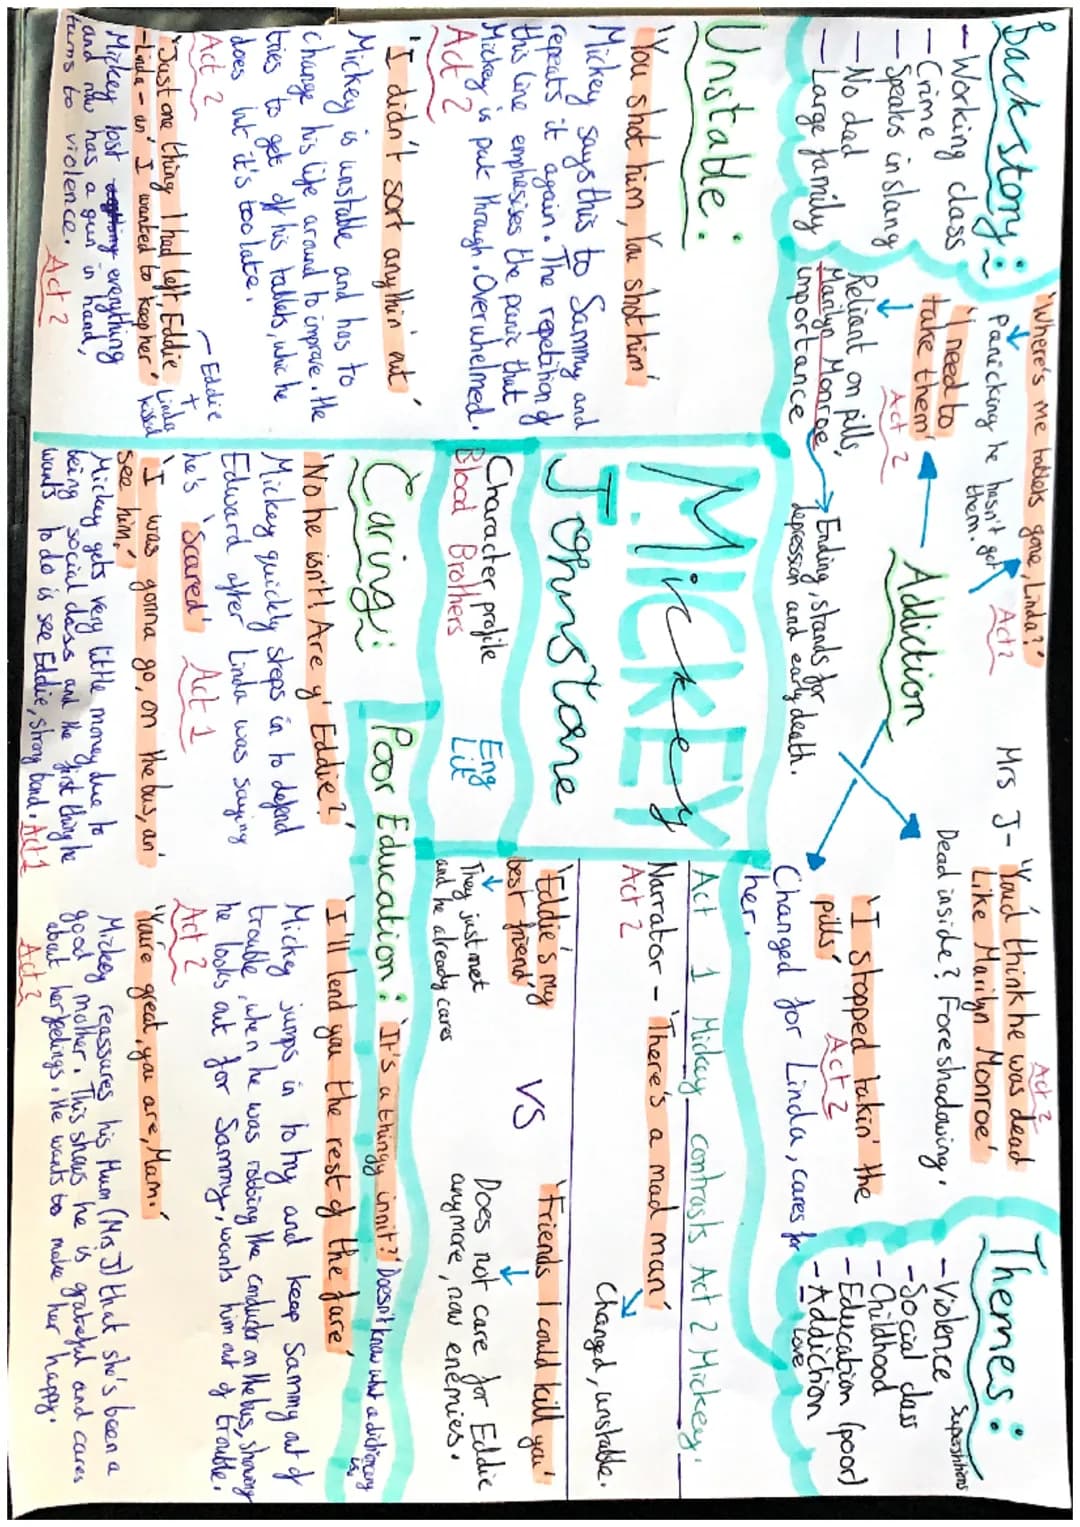 Backstory:
- Working class
- Crime
- Speaks in slang
- No dad
- Large family
'Where's me tablets gone, Linda?'
Act 2
panicking he hasn't got
them.
'I need to
take them'
Act 2
Reliant on pills,
Marilyn Monroe
importance
Ending, stands for
depression and early death.
Addiction
Mrs J - 'You'd think he was dead
Like Marilyn Monroe'
Act 2
Dead inside? Foreshadowing.
'I stopped takin' the
pills'
Act 2
Changed for Linda, cares for
her.
Themes:
- Violence
Superstitions
- Social class
- Childhood
- Education (poor)
- Addiction
- Love
Unstable:
'You shot him, You shot him'
Mickey says this to Sammy and
repeats it again. The repetition of
this line emphesises the panic that
Mickey is put through. Overwhelmed.
Act 2
'I didn't sort anythin' out'
Mickey is unstable and has to
change his life around to improve. He
tries to get off his tablets, which he
does but it's too late.
Act 2
Eddie
+
Linda
kissed
'Just one thing I had left, Eddie
- Linda - an' I wanted to keep her'
Mickey lost everything
and now has a gun in hand,
turns to violence.
Act 2
MICKEY
Mickey
Johnstone
Character profile
Blood Brothers
Eng
Lit
Act 1 Mickey contrasts Act 2 Mickey.
Narrator - 'There's a mad man'
Act 2
Changed, unstable.
'Eddie's my
best friend'
They just met
and he already cares
VS
'Friends I could kill you'
Does not care for Eddie
anymore, now enemies.
Caring:
'No he isn't! Are y' Eddie?'
Mickey quickly steps in to defend
Edward after Linda was saying
he's 'Scared'
Act 1
'I was gonna go, on the bus, an'
see him.'
Mickey gets very little money due to
being social class and the first thing he
wants to do is see Eddie, strong bond. Act 1
Poor Education: 'It's a thingy innit?' Doesn't know what a dictionary
is.
'I'll lend you the rest of the fare'
Mickey jumps in to try and keep Sammy out of
trouble, when he was robbing the conductor on the bus, showing
he looks out for Sammy, wants him out of trouble.
Act 2
'You're great, you are, Mam.'
Mickey reassures his Mum (Mrs J) that she's been a
good mother. This shows he is grateful and cares
about her feelings. He wants too make her happy.
Act 2